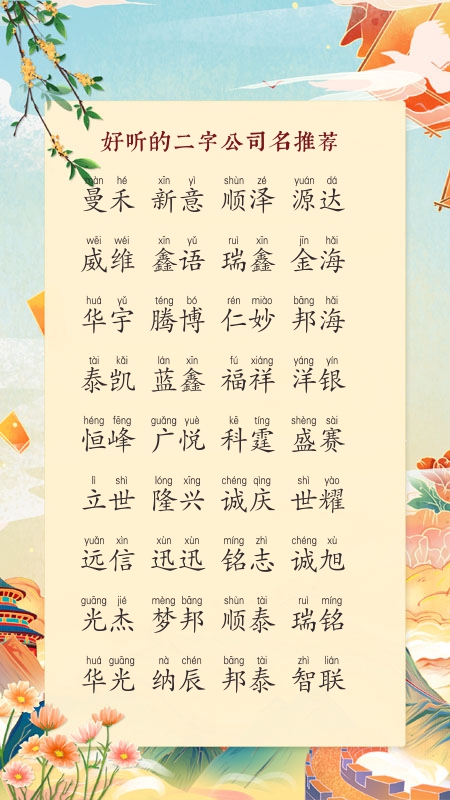 好听的二字公司名推荐
màn hé xīn yì shùn zé yuán dá
曼禾 新意 顺泽 源达
wēi wéi xīn yǔ ruì xīn jīn hǎi
威维 鑫语 瑞鑫 金海
huá yǔ téng bó rén miào bāng hǎi
华宇 腾博 仁妙 邦海
tài kǎi lán xīn fú xiáng yáng yín
泰凯 蓝鑫 福祥 洋银
héng fēng guǎng yuè kē tíng shèng sài
恒峰 广悦 科霆 盛赛
lì shì lóng xīng chéng qìng shì yào
立世 隆兴 诚庆 世耀
yuǎn xìn xùn xùn míng zhì chéng xù
远信 迅迅 铭志 诚旭
guāng jié mèng bāng shùn tài ruì míng
光杰 梦邦 顺泰 瑞铭
huá guāng nà chén bāng tài zhì lián
华光 纳辰 邦泰 智联